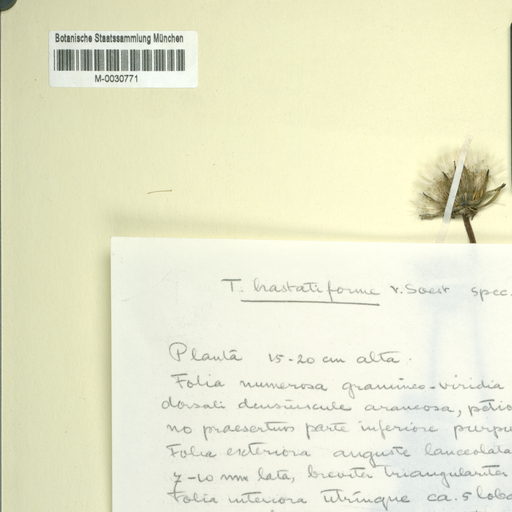 Botanische Staatssammlung München
M-0030771
T. hastatiforme v. Soest spec.
Planta 15-20 cm alta.
Folia numerosa gramineo-viridia
dorsali densiuscule araneosa, petio
no praesertim parte inferiore purpu
Folia exteriora anguste lanceolata
7-10 mm lata, breviter triangulariter
Folia interiora utrinque ca. 5 loba